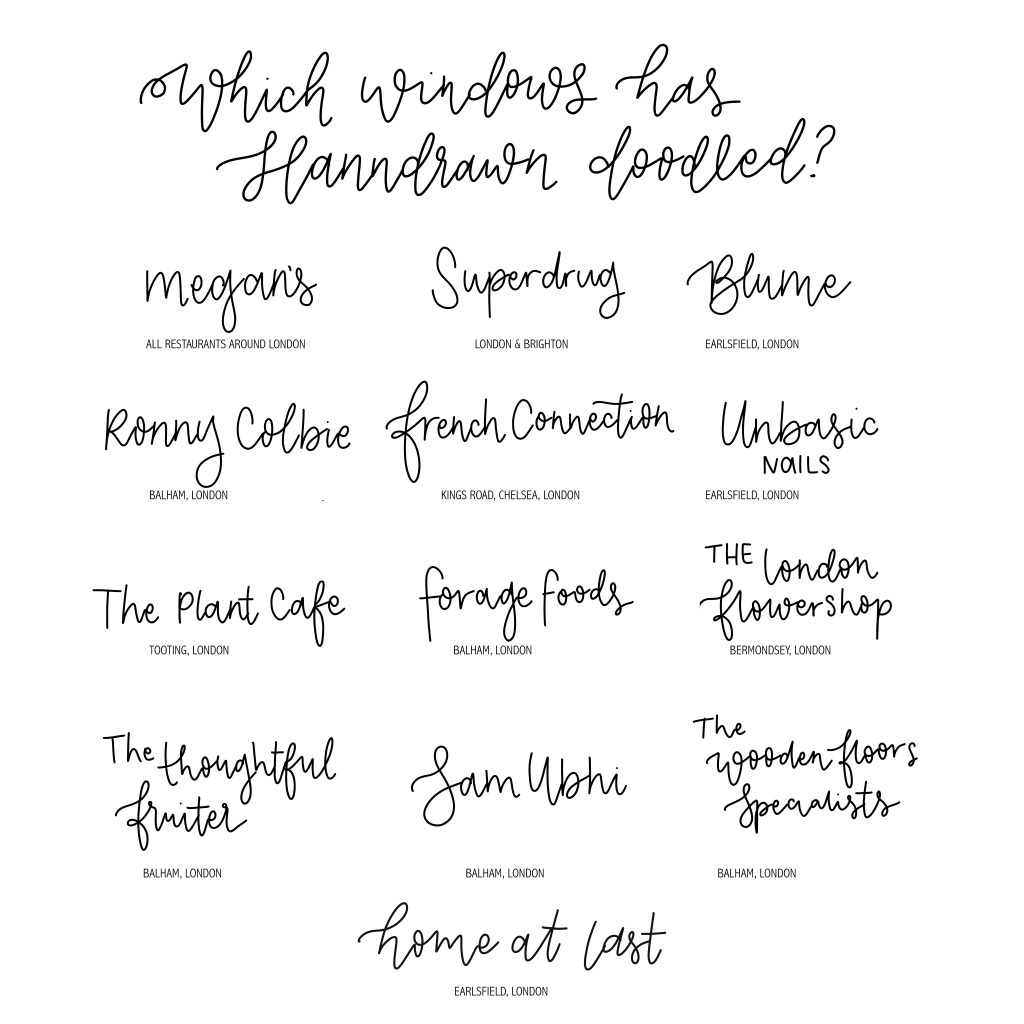 Which windows has
Hanndrawn doodled?
megan's
ALL RESTAURANTS AROUND LONDON
Superdrug
LONDON & BRIGHTON
Blume
EARLSFIELD, LONDON
Ronny Colbie
BALHAM, LONDON
french Connection
KINGS ROAD, CHELSEA, LONDON
Unbasic
NAILS
EARLSFIELD, LONDON
The Plant Cafe
TOOTING, LONDON
forage foods
BALHAM, LONDON
THE london
flowershop
BERMONDSEY, LONDON
The thoughtful
fruiter
BALHAM, LONDON
Sam Ubhi
BALHAM, LONDON
The
wooden floors
Specialists
BALHAM, LONDON
home at last
EARLSFIELD, LONDON